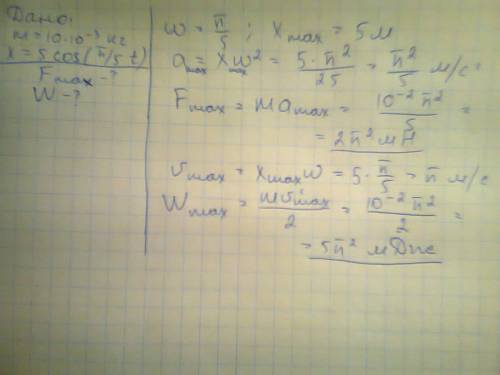 Дано:
m = 10·10⁻³ кг
x = 5 cos(π/5 t)
Fmax - ?
W - ?
w = π/5 ; Xmax = 5 м
amax = Xmax w² = 5·π²/25 = π²/5 м/с²
Fmax = m amax = 10⁻² π²/5 =
= 2π² мН
vmax = xmax w = 5·π/5 = π м/с
Wmax = mv²max/2 = 10⁻² π²/2 =
= 5π² мДж